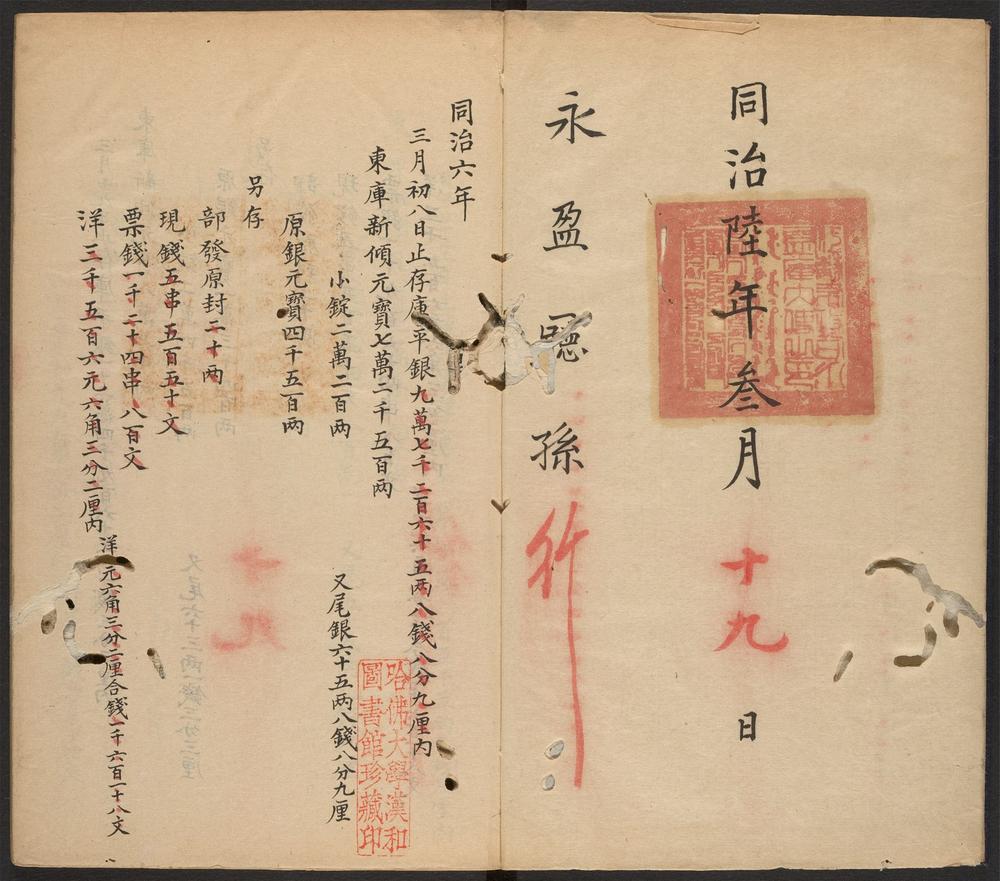 同治陸年叁月十九日
永盈聽孫行
同治六年
三月初八日止存庫平銀九萬七千二百六十五兩八錢八分九厘內
東庫新傾元寶七萬二千五百兩
小錠二萬二百兩
又尾銀六十五兩八錢八分九厘
原銀元寶四千五百兩
另存
部發原封二十兩
現錢五串五百五十文
票錢一千二十四串八百文
洋三千五百六元六角三分二厘內
洋元六角三分二厘合錢一千六百一十八文
哈佛大學漢和
圖書館珍藏印